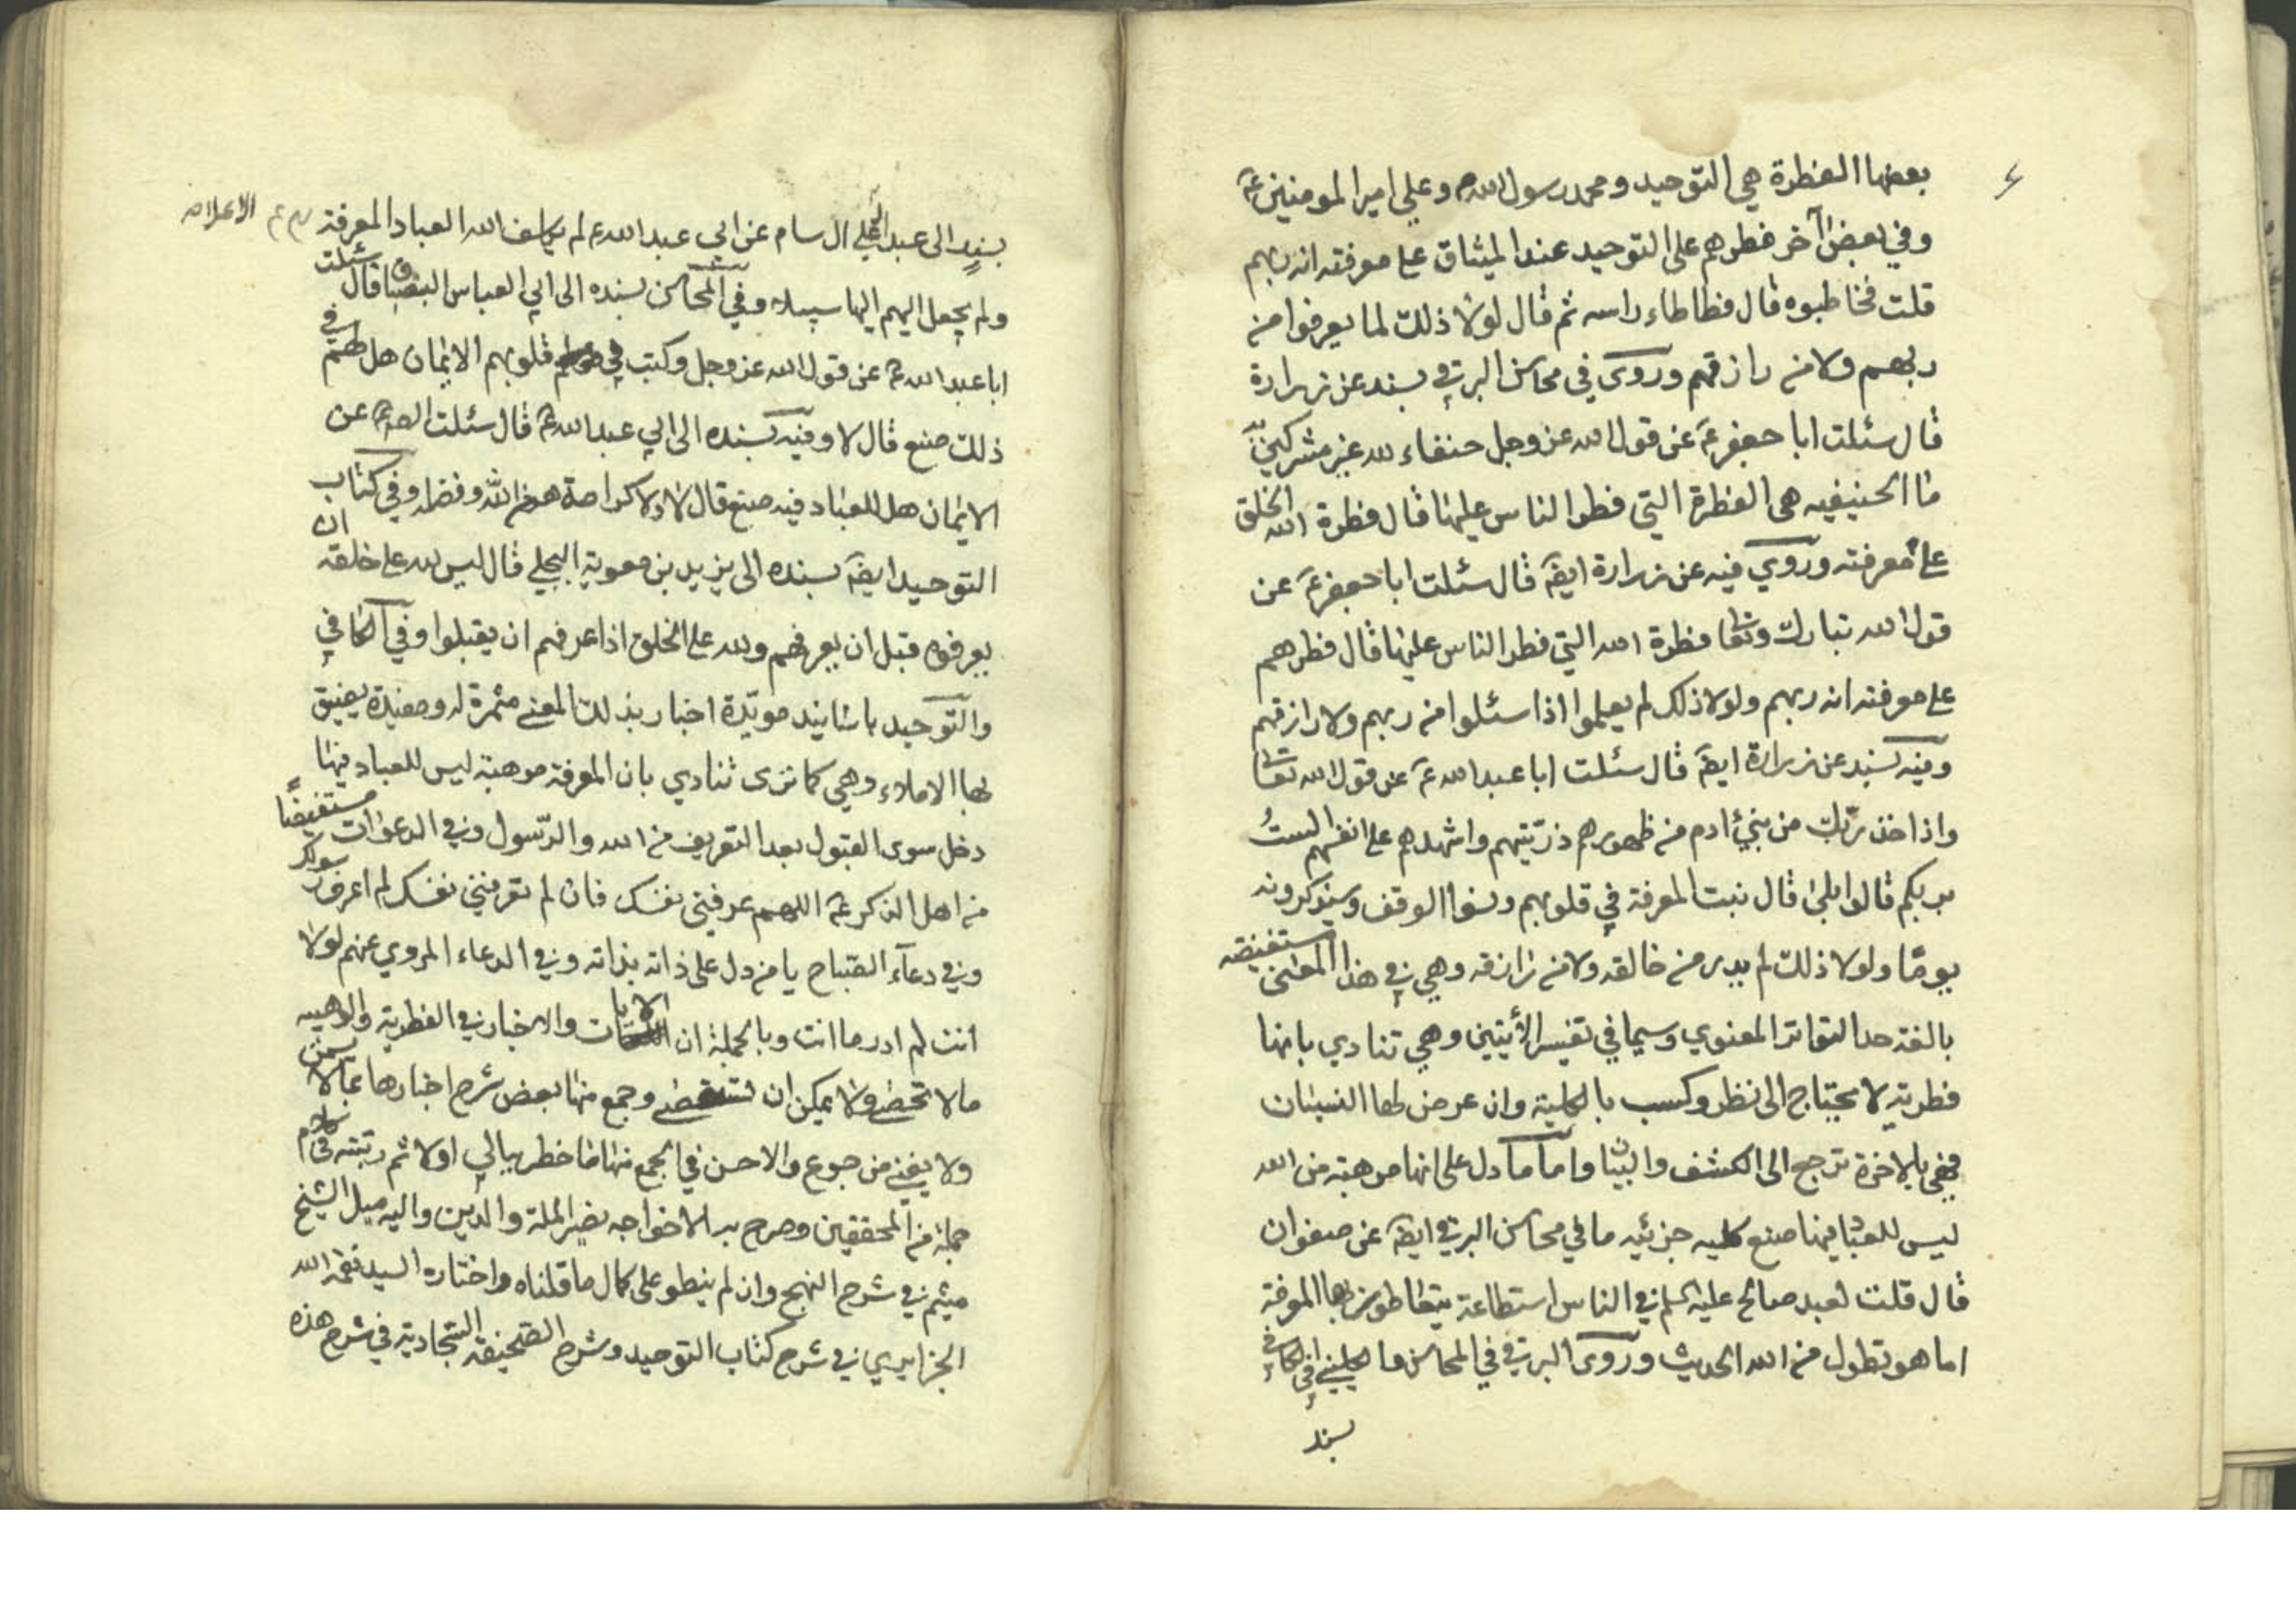 بعضها الفطرة هي التوحيد ومحمد رسول الله ص وعلي امير المومنين عَ
وفي بعض آخر فطرهم على التوحيد عند الميثاق على معرفته انه ربهم
قلت فخاطبوه قال فطاطاء راسه ثم قال لولا ذلك لما يعرفوا من
ربهم ولا من رازقهم وروى في محاسن البرقي بسند عن زرارة
قال سئلت ابا جعفر عَ عن قول الله عز وجل حنفاء لله غير مشركين به
ما الحنيفيه هي الفطرة التي فطر الناس عليها قال فطرة الله الخلق
على معرفته وروي فيه عن زرارة ايضَ قال سئلت ابا جعفر عَ عن
قول الله تبارك وتعا فطرة الله التي فطر الناس عليها قال فطرهم
على معرفته انه ربهم ولولا ذلك لم يعلموا اذا سئلوا من ربهم ولا رازقهم
وفيه بسند عن زرارة ايضَ قال سئلت ابا عبد الله عَ عن قول الله تعا
واذ اخذ ربّك من بني ادم من ظهورهم ذرّيتهم واشهدهم على انفسهم الستُ
بربكم قالوا بلى قال ثبت المعرفة في قلوبهم ونسوا الوقف وسيذكرونه
يومًا ولولا ذلك لم يدر من خالقه ولا من رازقه وهي في هذا المعنى مستفيضه
بالغة حد التواتر المعنوي وسيما في تفسير الآيتين وهي تنادي بانها
فطرية لا يحتاج الى نظر وكسب بالكلية وان عرض لها النسيان
فهي بالاخرة ترجع الى الكشف والبيان واما ما دل على انها موهبة من الله
ليس للعباد فيها صنع كليه جزئيه ما في محاسن البرقي ايضَ عن صفوان
قال قلت لعبد صالح عليه السلم في الناس استطاعة يتعاطون بها المعرفة
اما هو تطول من الله الحديث وروى البرقي في المحاسن والكليني في الكافي
بسند
بسند الى عبد الاعلى ال سام عن ابي عبد الله ع لم يكلف الله العباد المعرفة
ولم يجعل اليهم اليها سبيلا وفي المحاسن بسنده الى ابي العباس البقباق قال سئلت
ابا عبد الله عَ عن قول الله عز وجل وكتب في قلوبهم الايمان هل لهم في
ذلك صنع قال لا وفيه بسنده الى ابي عبد الله عَ قال سئلت عن
الايمان هل للعباد فيه صنع قال لا ولا كرامة هو من الله وفضله وفي كتاب
التوحيد ايضَ بسنده الى يزيد بن معوية البجلي قال ليس لله على خلقه ان
يعرفوه قبل ان يعرفهم ولله على الخلق اذا عرفهم ان يقبلوا وفي الكافي
والتوحيد باسانيد مويّدة اخبار بذلك المعنى مثمرة له ومفيدة يضيق
بها الاملاء وهي كما ترى تنادي بان المعرفة موهبة ليس للعباد فيها
دخل سوى القبول بعد التعريف من الله والرّسول وفي الدعوات مستفيضًا
من اهل الذكر عَ اللهم عرفني نفسك فان لم تعرفني نفسك لم اعرف رسولك
وفي دعآء الصّباح يا من دل على ذاته بذاته وفي الدعاء المروي عنهم لولا
انت لم ادر ما انت وبالجملة ان الايات والاخبار في الفطرية
ما لا تحصى ولا يمكن ان تستقصى وجمع منها بعض شرح اخبارها بما لا يسمن
ولا يغني من جوع والاحسن في الجمع منها ما خطر ببالي اولا ثم رتبته في كلام
جملة من المحققين وصرح به الاخواجه نصير الملة والدّين واليه ميل الشيخ
ميثم في شرح النهج وان لم ينطو على كمال ما قلناه واختاره السيد نعمة الله
الجزايري في شرح كتاب التوحيد وشرح الصّحيفة السّجادية في شرح هذه